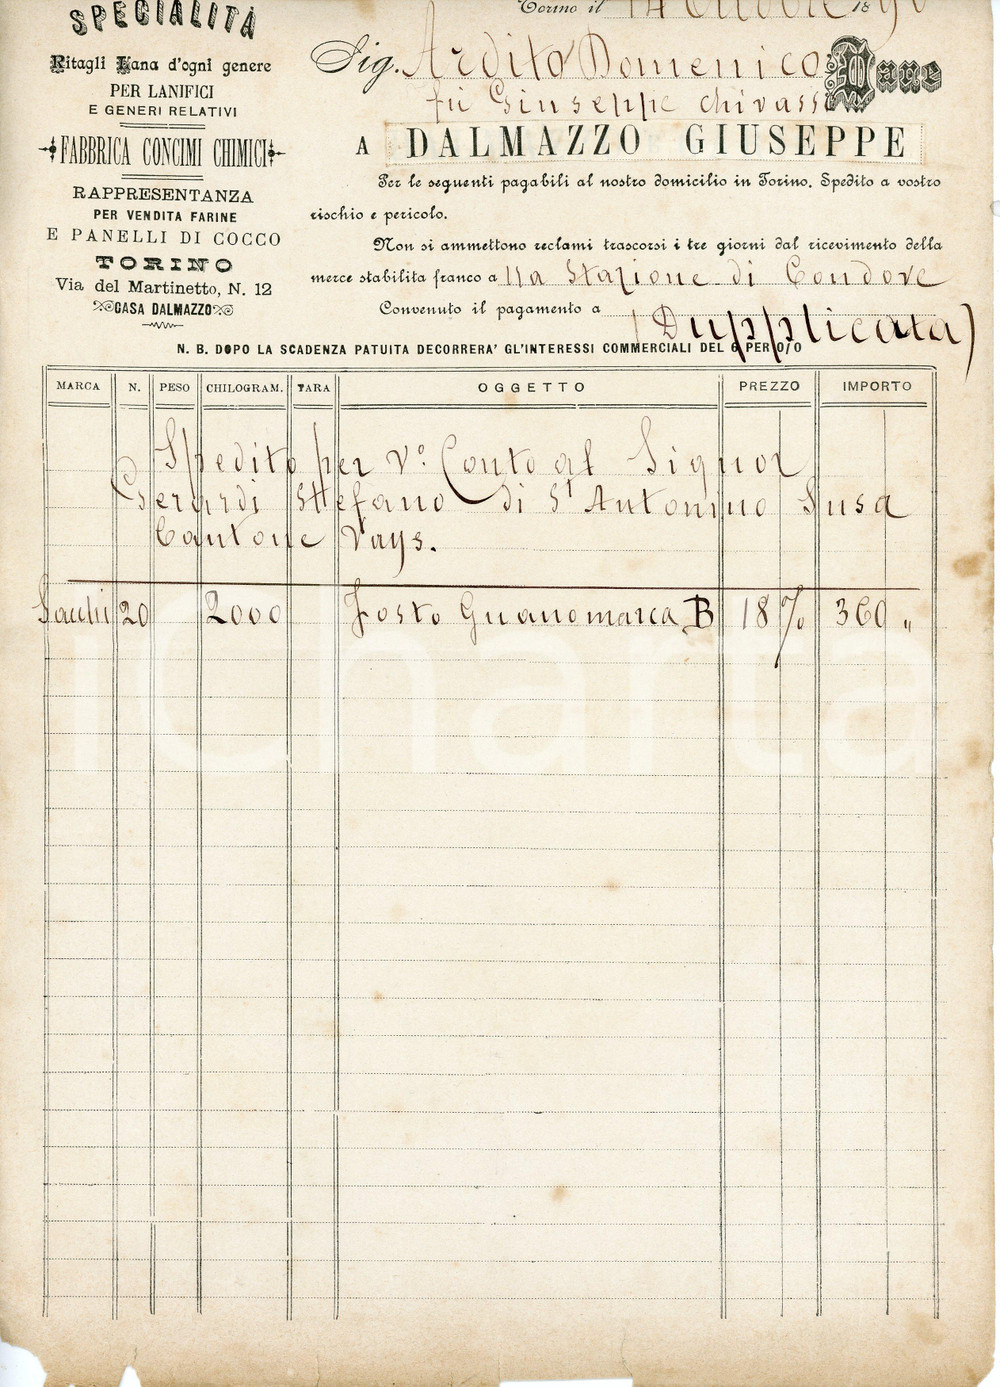 SPECIALITÀ
Ritagli Lana d'ogni genere
PER LANIFICI
E GENERI RELATIVI
FABBRICA CONCIMI CHIMICI
RAPPRESENTANZA
PER VENDITA FARINE
E PANELLI DI COCCO
TORINO
Via del Martinetto, N. 12
CASA DALMAZZO
Torino il 14 Ottobre 1890
Sig. Ardito Domenico Dare
fu Giuseppe Chivasso
A DALMAZZO GIUSEPPE
Per le seguenti pagabili al nostro domicilio in Torino. Spedito a vostro
rischio e pericolo.
Non si ammettono reclami trascorsi i tre giorni dal ricevimento della
merce stabilita franco a Stazione di Condove
Convenuto il pagamento a
(Dupplicata)
N. B. DOPO LA SCADENZA PATUITA DECORRERA' GL'INTERESSI COMMERCIALI DEL 6 PER 0/0
MARCA N. PESO CHILOGRAM. TARA OGGETTO PREZZO IMPORTO
Spedito per Vº Conto al Signor
Gerardi Steffano di St Antonino Susa
Cantone Vays.
Sacchi 20 2000 Fosfo Guano marca B 18 % 360 "
iCharta